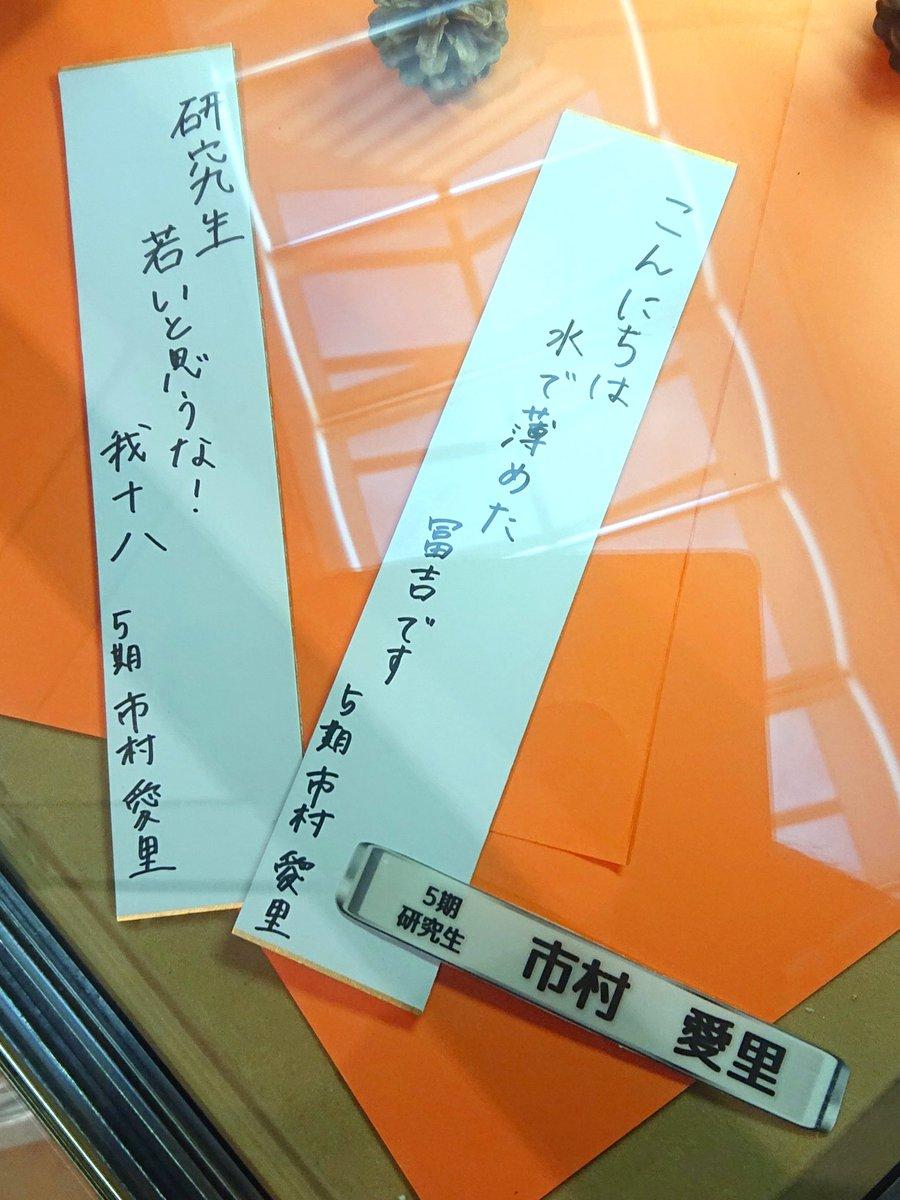 研究生
若いと思うな！
我十八
5期 市村 愛里
こんにちは
水で薄めた
冨吉です
5期 市村 愛里
5期
研究生
市村 愛里